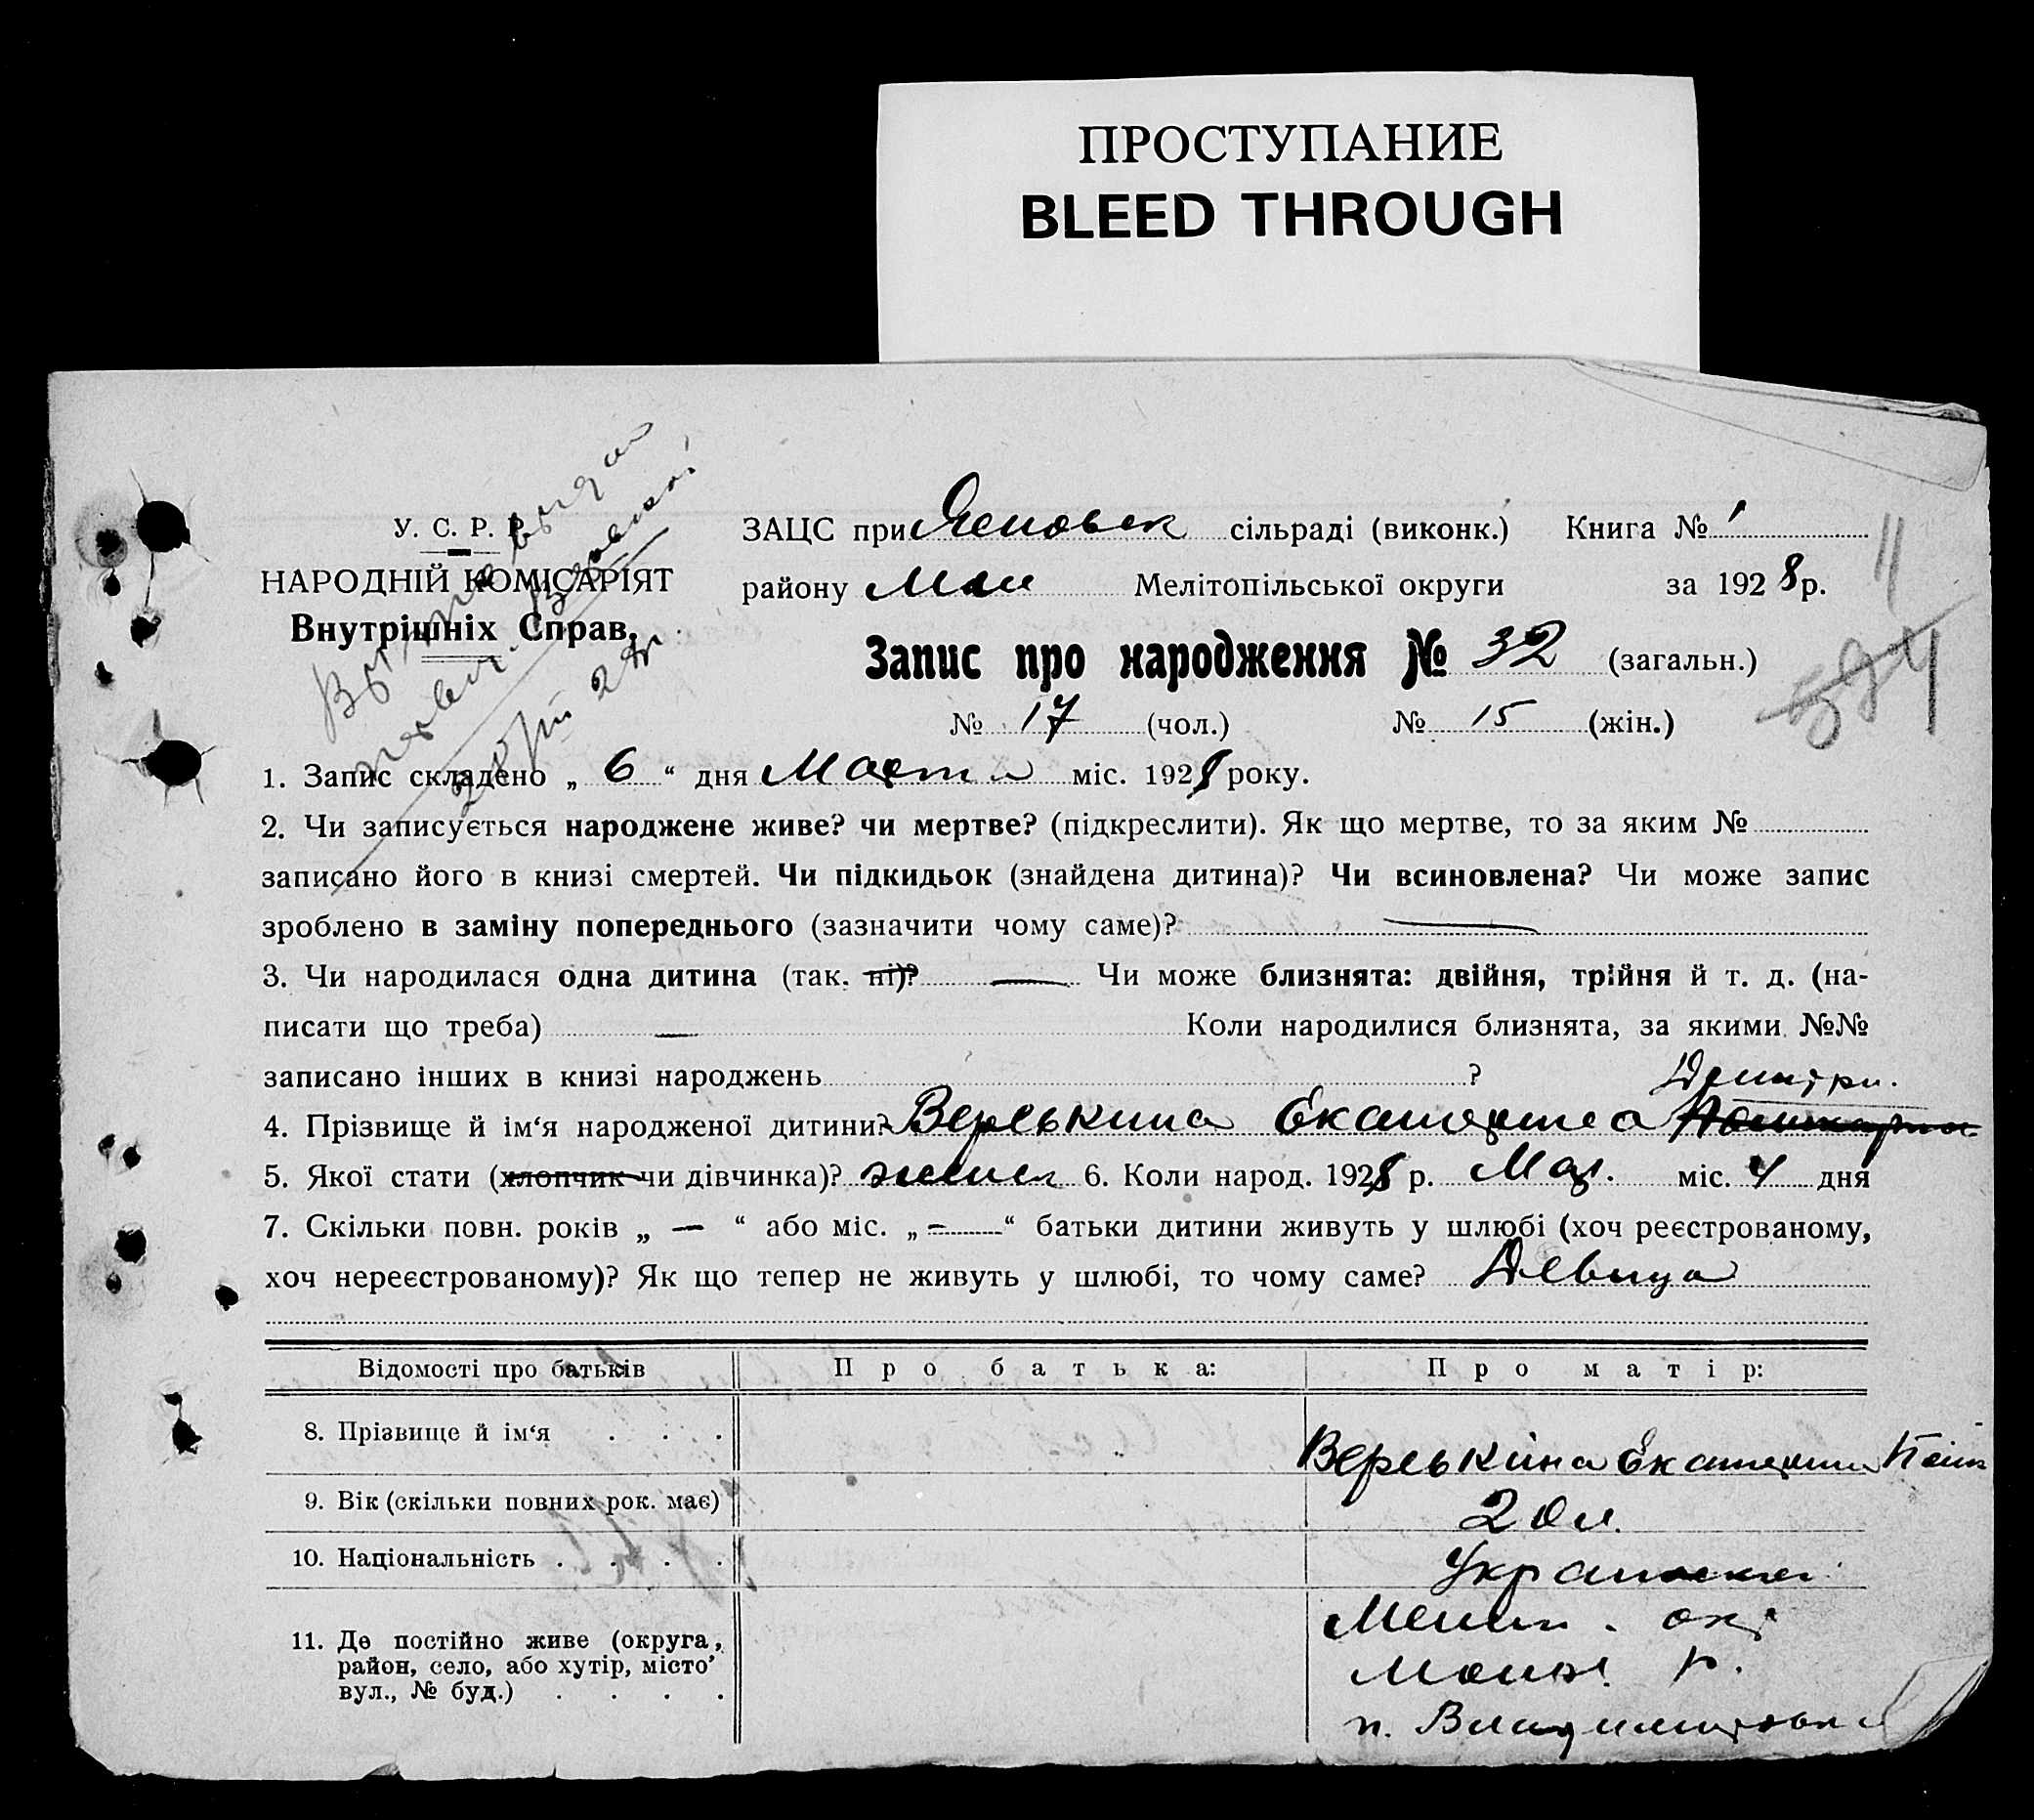 ПРОСТУПАНИЕ
BLEED THROUGH
У. С. Р. Р.
НАРОДНІЙ КОМІСАРІЯТ
Внутрішніх Справ.
ЗАЦС при сільраді (виконк.) Книга № 1
району Мелітопільської округи за 1928 р.
11
Запис про народження № 32 (загальн.)
№ 17 (чол.) № 15 (жін.)
1. Запис складено „ 6 “ дня Марта міс. 1928 року.
2. Чи записується народжене живе? чи мертве? (підкреслити). Як що мертве, то за яким №
записано його в книзі смертей. Чи підкидьок (знайдена дитина)? Чи всиновлена? Чи може запис
зроблено в заміну попереднього (зазначити чому саме)? —
3. Чи народилася одна дитина (так, ні)? — Чи може близнята: двійня, трійня й т. д. (на-
писати що треба) — Коли народилися близнята, за якими №№
записано інших в книзі народжень ?
Дмитри.
4. Прізвище й ім‘я народженої дитини? Веревкина Екатерина
5. Якої стати (хлопчик чи дівчинка)? 6. Коли народ. 1928 р. Мар. міс. 4 дня
7. Скільки повн. років „ — “ або міс. „ — “ батьки дитини живуть у шлюбі (хоч реєстрованому,
хоч нереєстрованому)? Як що тепер не живуть у шлюбі, то чому саме? Девица
Відомості про батьків Про батька: Про матір:
8. Прізвище й ім‘я . . . . Веревкина Екатерина
9. Вік (скільки повних рок. має) 20 л.
10. Національність . . . .
11. Де постійно живе (округа, Мелит. окр
район, село, або хутір, місто’ р.
вул., № буд.) . . . . п. Владимировка